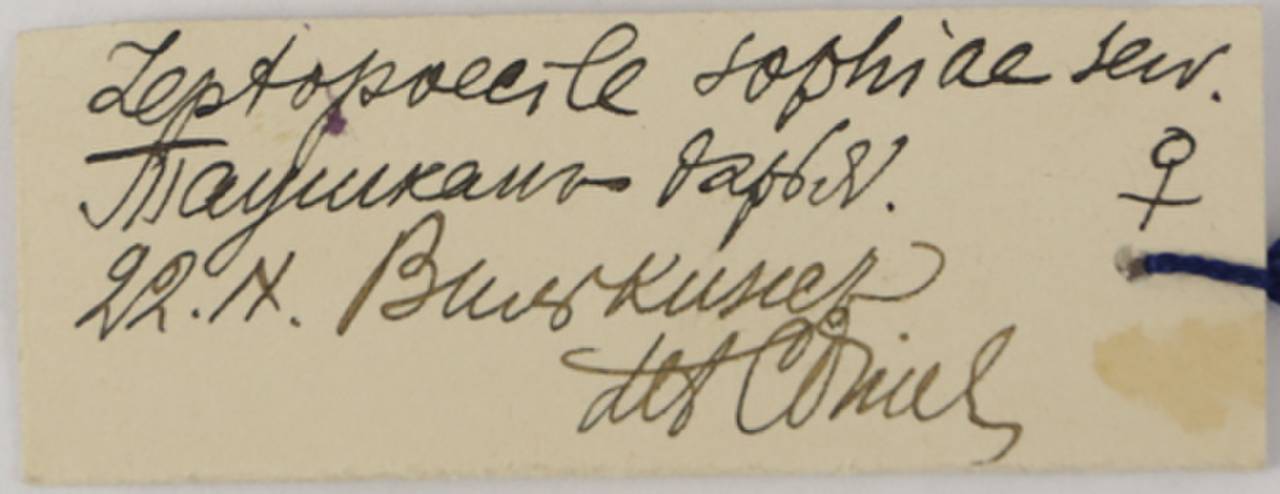 Leptopoecile sophiae sew.
Таушкань дарья. ♀
22. X. Вилькинс
det